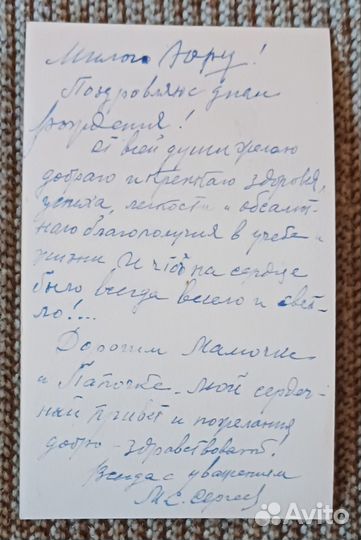 Милого Лору!
Поздровляю с днем
рождения!
От всей души желаю
доброго и крепкаго здоровья,
успеха, легкости и
благополучия в учебе и
жизни и чтоб на сердце
было всегда весело и свет-
ло!...
Дорогим Мамочке
и Папочке - мой сердеч-
ный привет и пожелания
добро-здравствоват.
Всегда с уважением
М. Сергеев
Avito